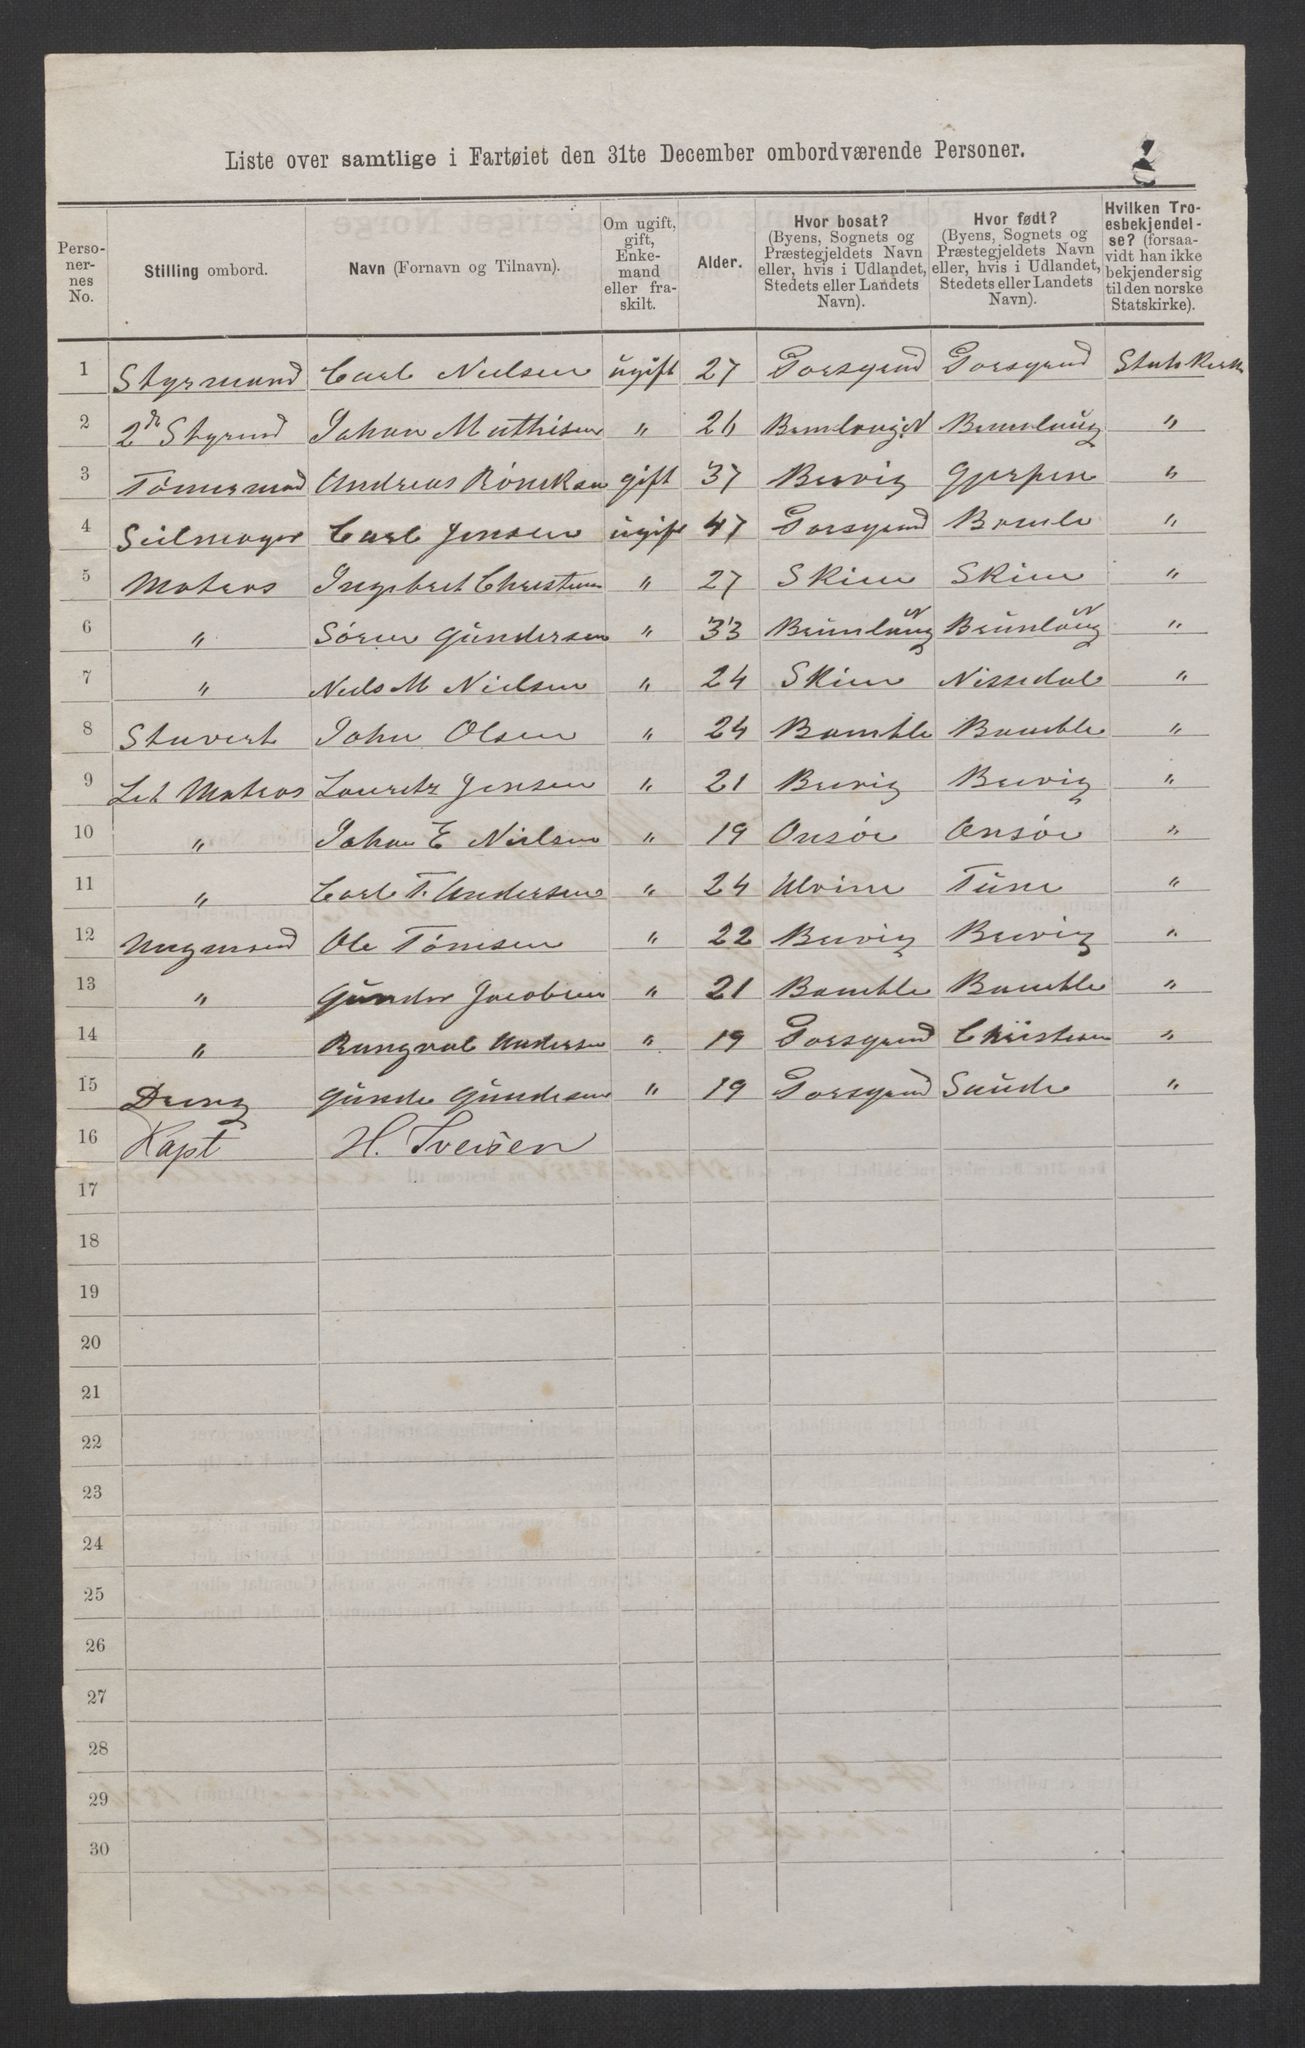 Liste over samtlige i Fartøiet den 31te December ombordværende Personer.
Perso-
ner-
nes
No.
Stilling ombord.
Navn (Fornavn og Tilnavn).
Om ugift,
gift,
Enke-
mand
eller fra-
skilt.
Alder.
Hvor bosat?
(Byens, Sognets og
Præstegjeldets Navn
eller, hvis i Udlandet,
Stedets eller Landets
Navn).
Hvor født?
(Byens, Sognets og
Præstegjeldets Navn
eller, hvis i Udlandet,
Stedets eller Landets
Navn).
Hvilken Tro-
esbekjendel-
se? (forsaa-
vidt han ikke
bekjender sig
til den norske
Statskirke).
1 Styrmand Carl Nielsen ugift 27 Porsgrund Porsgrund Statskirken
2 2den Styrmd Johan Mathisen " 26 Brunlaug
3 Tømermand Andreas gift 37 Brevig Gjerpen "
4 Seilmager Carl Jensen ugift 47 Porsgrund Bamle "
5 Matros Ingebret Christensen " 27 Skien Skien "
6 " Søren Gundersen " 33 Brunlaug Brunlaug "
7 " Niels M Nielsen " 24 Skien Nissedal "
8 Stuvert John Olsen " 24 Bamble Bamble "
9 Let Matros Lauritz Jensen " 21 Brevig Brevig "
10 " Johan E Nielsen " 19 Onsøe Onsøe "
11 " Carl T. Andersen " 24 Tune "
12 Ungmand Ole Tømsen " 22 Brevig Brevig "
13 " Gunder Jacobsen " 21 Bamble Bamble "
14 " Rangval Andersen " 19 Porsgrund "
15 Dreng Gunde Gundesen " 19 Porsgrund Saude "
16 Kapt H. Iversen
17
18
19
20
21
22
23
24
25
26
27
28
29
30